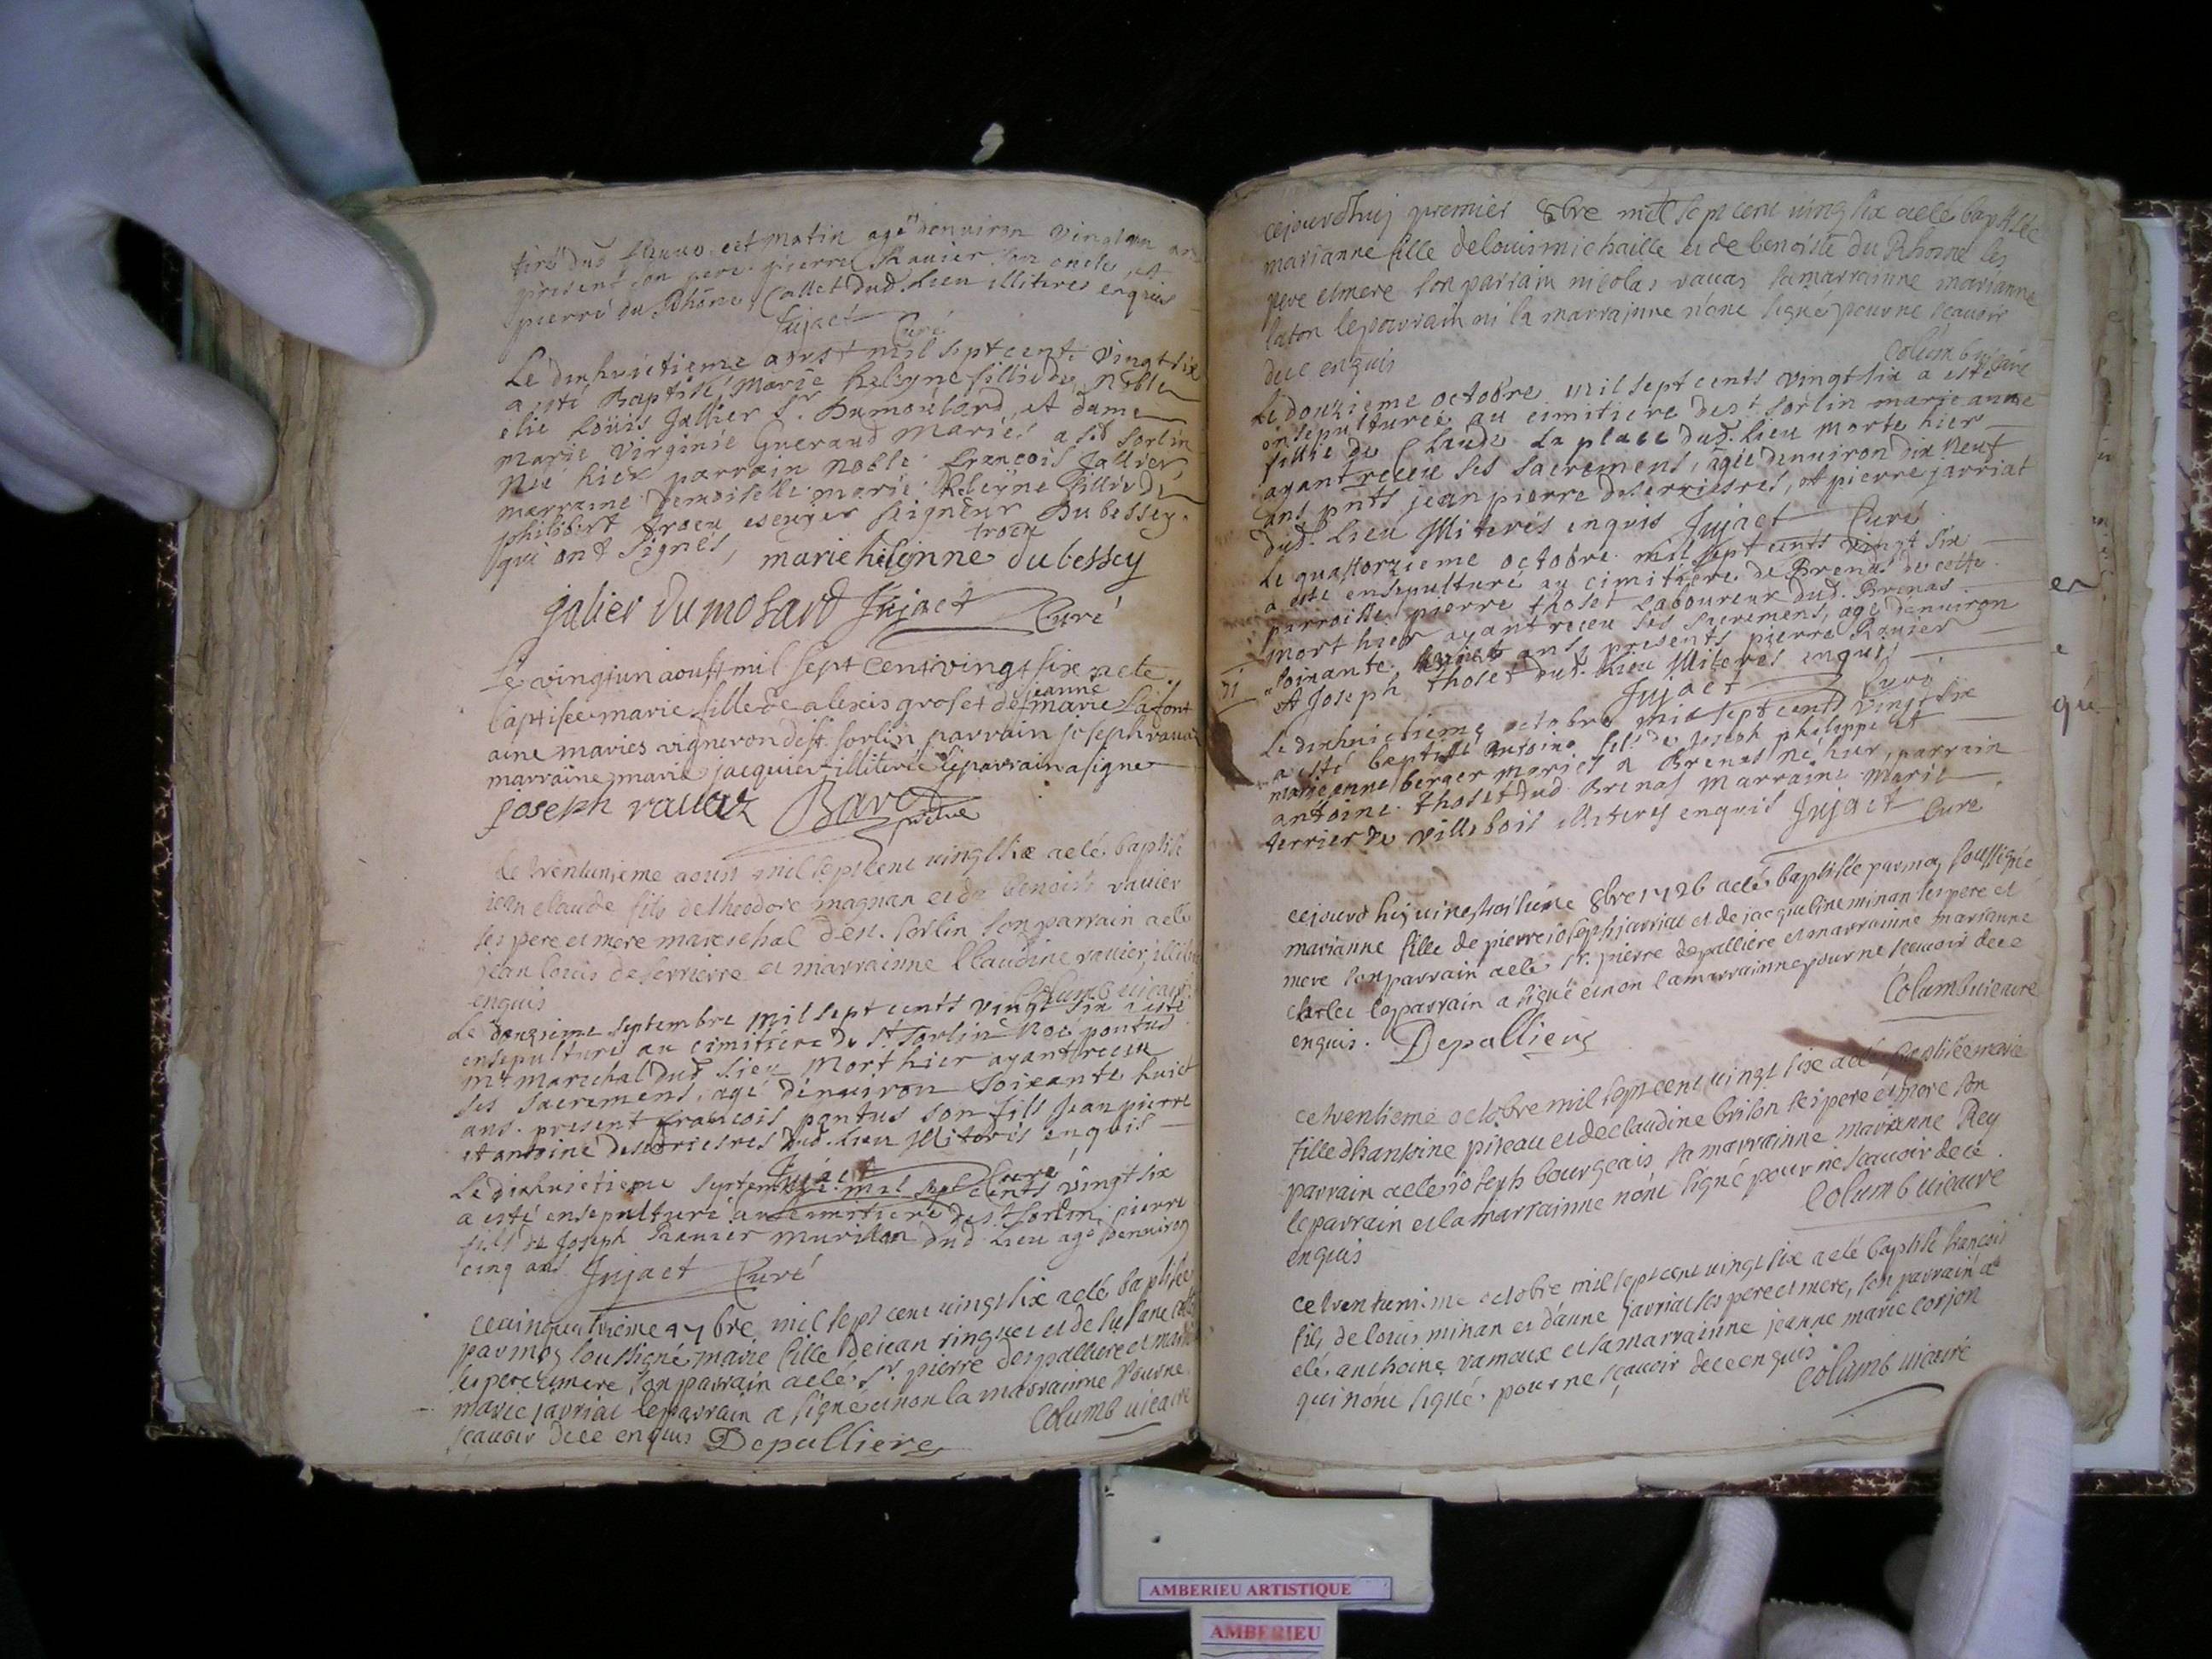 agé denviron vingt un ans
present son pere pierre Ravier son oncle et
pierre du Rhône Collet dud. Lieu illiteres enquis
Jujact Curé
Le dixhuictieme aoust mil sept cent vingt six
a esté Baptisé Marie heleyne fillie de Noble
elie Loüis Jallier Sr. Dumoulard, et dame
Marie Virginie Gueraud Mariés a St Sorlin
Née hier parrain Noble François Jallier
marraine Demoiselle marie heleyne fillie de
philibert troeu escuyer seigneur Dubessey
qui ont signés, marie helenne troeu dubessey
galier dumolard Jujact Curé
Le vingt un aoust mil sept cent vingt six a ete
baptisée marie fille de alexis gros et de jeanne marie Lafont
aine maries vigneron de st. sorlin parrain joseph ravaz
marraine marie jacquier illiterée le parrain a signe
joseph ravaz Bavoz
Le trentunieme aoust mil sept cent vingt six a eté baptisé
jean claude fils de theodore magnan et de benoiste ravier
ses pere et mere mareschal de st. sorlin son parrain a eté
jean louis deserriere et marrainne Claudine ravier, illit
enquis Columb vicaire
Le septembre mil sept cents vingt six a esté
ensepulturé au cimitiere de st sorlin Noé pontus
mt Marechal dud Lieu mort hier ayant receu
ses sacrements, agé denviron soixante huict
ans. present françois pontus son fils jean pierre
et antoine deserriesres dud. Lieu illiterés enquis
Jujact Curé
Le dixhuictieme septembre mil sept cents vingt six
a esté ensepulturé au cimitiere de st sorlin pierre
fils de Joseph Ravier dud Lieu agé denviron
cinq ans Jujact Curé
ce vingquatrieme 7bre mil sept cent vingt six a eté baptisée
par moy soussigné marie fille de jean ringuet et de
ses pere et mere, son parrain a eté Sr. pierre depalliere et
marie jarriat le parrain a signé et non la marrainne pour ne
scavoir de ce enquis Depalliere Columb vicaire
cejourdhuy premier 8bre mil sept cent vingt six a eté baptisée
marianne fille de louis michaille et de benoiste du Rhosne ses
pere et mere son parrain nicolas ravaz sa marrainne marianne
laton le parrain ni la marrainne n'ont signé pour ne scavoir
de ce enquis Columb vicaire
Le douzieme octobre mil sept cents vingt six a esté
ensepulturée au cimitiere de st sorlin marie anne
fillie de Claude La place dud. Lieu morte hier
ayant receu ses sacrements, agée denviron dix neuf
ans pnts jean pierre deserriesres, et pierre jarriat
dud. Lieu illiterés enquis Jujact Curé
Le quattorzieme octobre mil sept cents vingt six
a esté ensepulturé au cimitiere de Brenas de cette
parroisse pierre thoset Laboureur dud. Brenas
mort hier ayant receu ses sacrements, agé denviron
soixante ans, presents pierre Ravier
et Joseph thoset dud. Lieu illiteres enquis
Jujact Curé
Le dixhuictieme octobre mil sept cents vingt six
a esté baptisé antoine fils de Joseph philippe et
marie anne berger mariés a Brenas né hier, parrain
antoine thoset dud Brenas marraine marie
terrier de villebois illiteres enquis Jujact Curé
cejourd huy vinestroisieme 8bre 1726 a eté baptisée par moy soussigné
marianne fille de pierre joseph jarriat et de jacqueline minan ses pere et
mere son parrain a eté Sr. pierre depalliere et marrainne marianne
le parrain a signé et non la marrainne pour ne scavoir de ce
enquis. Depalliere Columb vicaire
ce trentieme octobre mil sept cent vingt six a eté baptisée marie
fille dhantoine piseau et de claudine brison ses pere et mere son
parrain a eté joseph bourgeois sa marrainne marianne Rey
le parrain et la marrainne n'ont signé pour ne scavoir de ce
enquis Columb vicaire
ce trentunieme octobre mil sept cent vingt six a eté baptisé francois
fils de louis minan et d'anne jarriat ses pere et mere, son parrain a
eté anthoine ramoux et sa marrainne jeanne marie corjon
qui n'ont signé pour ne scavoir de ce enquis. Columb vicaire
er
e
qu
AMBERIEU ARTISTIQUE
AMBERIEU